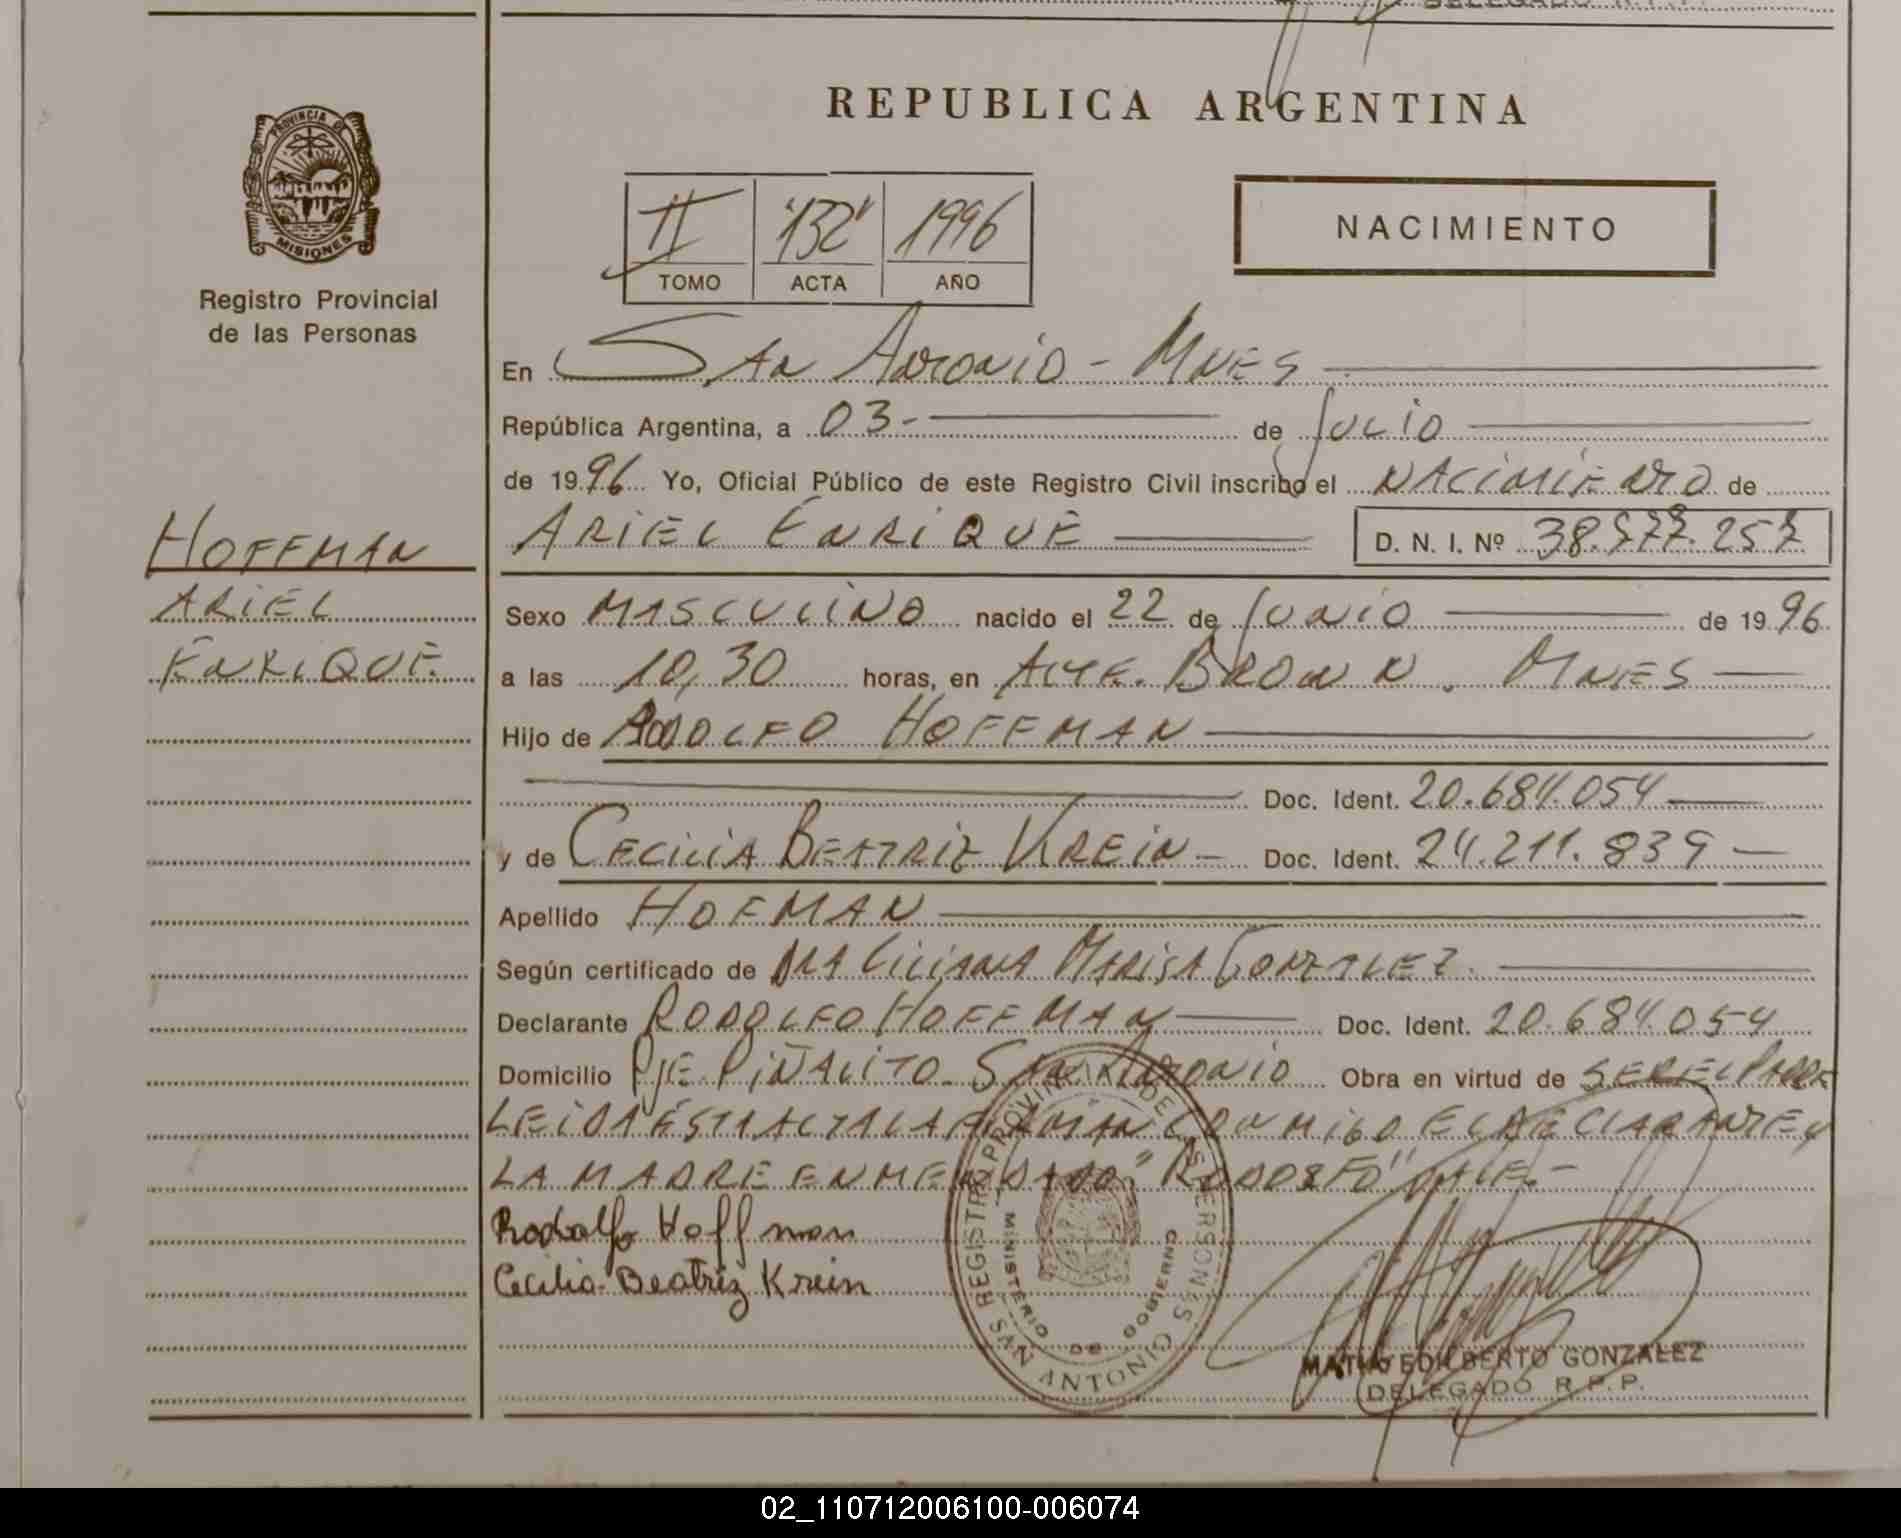 REPUBLICA ARGENTINA
PROVINCIA DE
MISIONES
Registro Provincial
de las Personas
II "132" 1996
TOMO ACTA AÑO
NACIMIENTO
En San Antonio - Mnes
República Argentina, a 03 - de Julio
de 1996 Yo, Oficial Público de este Registro Civil inscribo el NACIMIENTO de
HOFFMAN
ARIEL
ENRIQUE
ARIEL ENRIQUE D. N. I. Nº 38.577.257
Sexo MASCULINO nacido el 22 de Junio de 1996
a las 10,30 horas, en ALTE. BROWN. Mnes
Hijo de RODOLFO HOFFMAN
Doc. Ident. 20.684.054
y de CECILIA BEATRIZ KREIN - Doc. Ident. 24.211.839
Apellido HOFMAN
Según certificado de DRA LILIANA MARISA GONZALEZ.
Declarante RODOLFO HOFFMAN Doc. Ident. 20.684.054
Domicilio PJE. PIÑALITO. SAN ANTONIO Obra en virtud de SER EL PADRE
LEIDA ESTA ACTA LA FIRMAN CONMIGO EL DECLARANTE Y
LA MADRE ENMENDADO "RODOLFO" VALE. -
Rodolfo Hoffman
Cecilia Beatriz Krein
REGISTRO PROVINCIAL DE LAS PERSONAS
MINISTERIO DE GOBIERNO
SAN ANTONIO
EDILBERTO GONZALEZ
DELEGADO R.P.P.
02_110712006100-006074